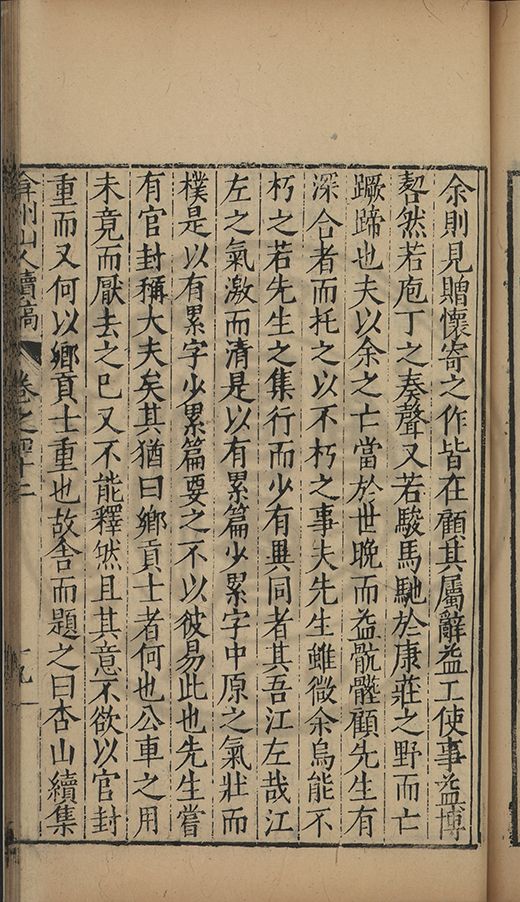 余則見贈懷寄之作皆在顧其屬辭益工使事益博
砉然若庖丁之奏聲又若駿馬馳於康莊之野而亡
蹶蹄也夫以余之亡當於世晚而益骯髒顧先生有
深合者而托之以不朽之事夫先生雖微余烏能不
朽之若先生之集行而少有異同者其吾江左哉江
左之氣激而清是以有累篇少累字中原之氣壯而
樸是以有累字少累篇要之不以彼易此也先生嘗
有官封稱大夫矣其猶曰鄉貢士者何也公車之用
未竟而厭去之已又不能釋然且其意不欲以官封
重而又何以鄉貢士重也故舍而題之曰杏山續集
弇州山人續稿 卷之四十二 十九